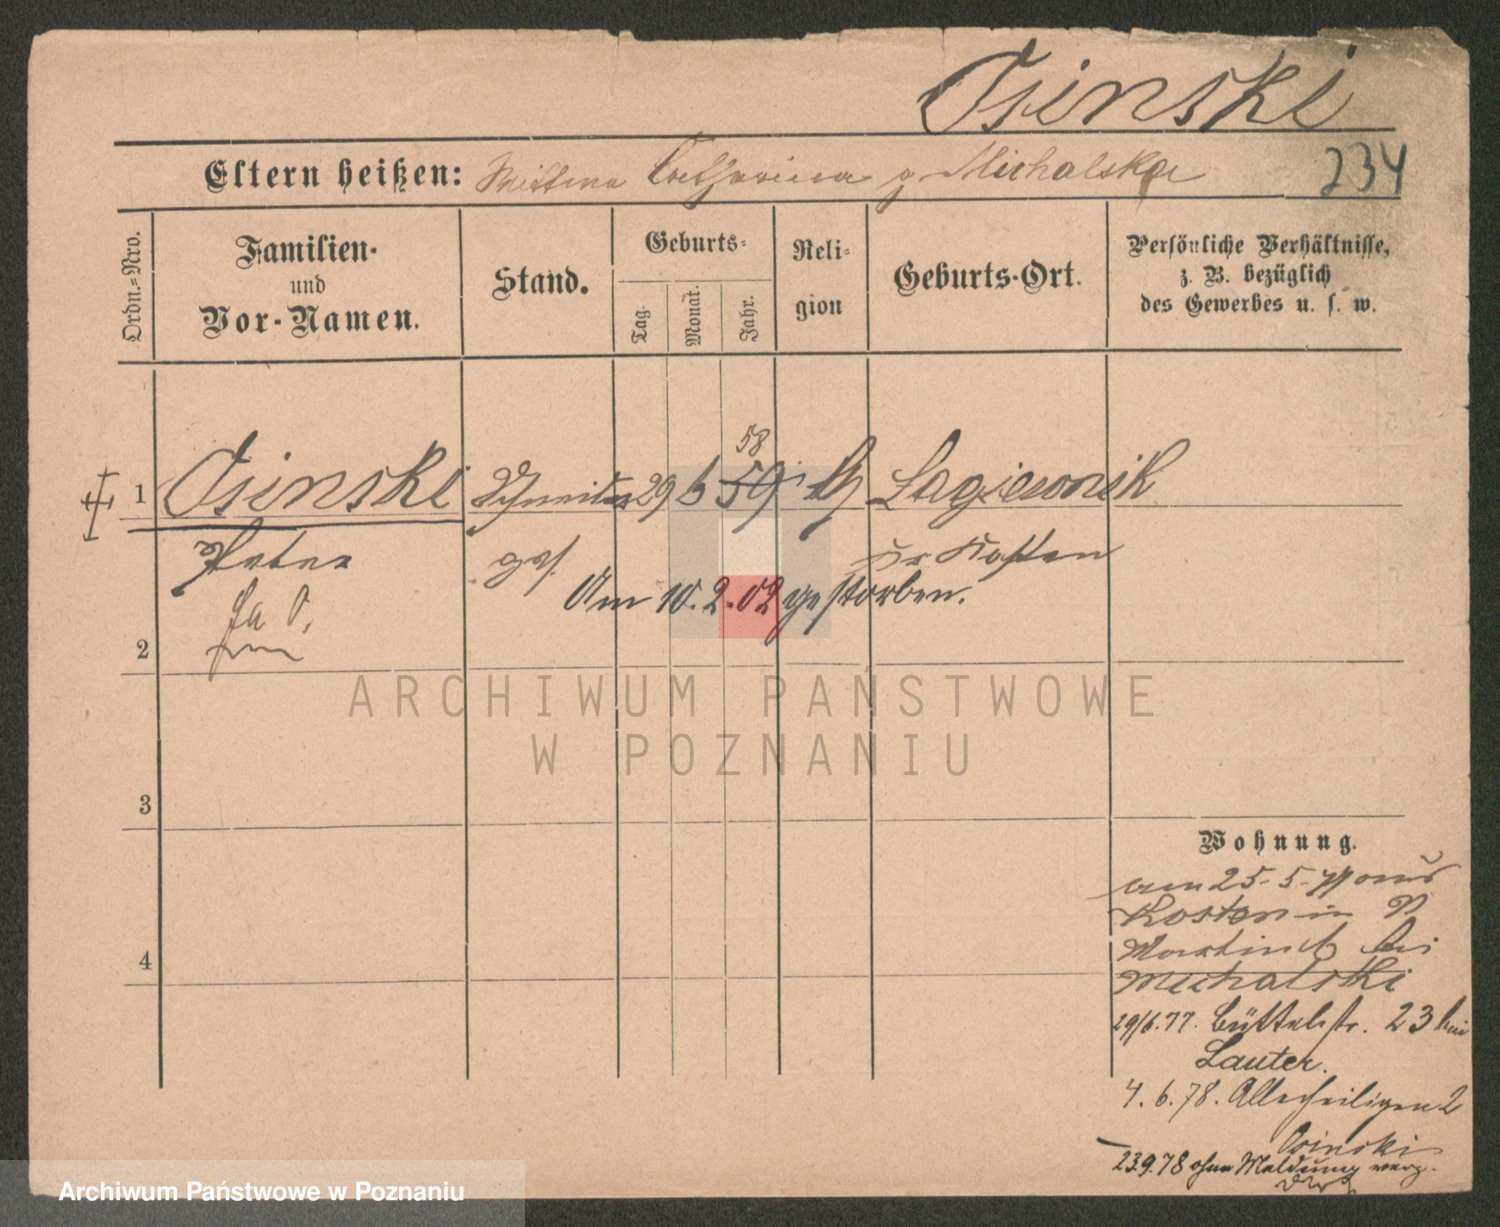 Osinski
234
Eltern heißen: Mittma Catharina g Michalska
Ordn.=Nro.
Familien-
und
Vor-Namen.
Stand.
Geburts=
Tag.
Monat.
Jahr.
Reli-
gion
Geburts-Ort.
Persönliche Verhältnisse,
z. B. bezüglich
des Gewerbes u. s. w.
58
1 Osinski Schneider 29 6 59 Lagiewnik
Peter ges. Kr Kosten
Am 10.2.02 gestorben.
2
3
4
Wohnung.
am 25-5-77 aus
Kosten in
Martinst bei
Michalski
29/6.77. Büttelstr. 23 bei
Lauter.
4.6.78. Allerheiligen 2
Osinski
23.9.78 ohne Meldung verz.
ARCHIWUM PAŃSTWOWE
W POZNANIU
Archiwum Państwowe w Poznaniu